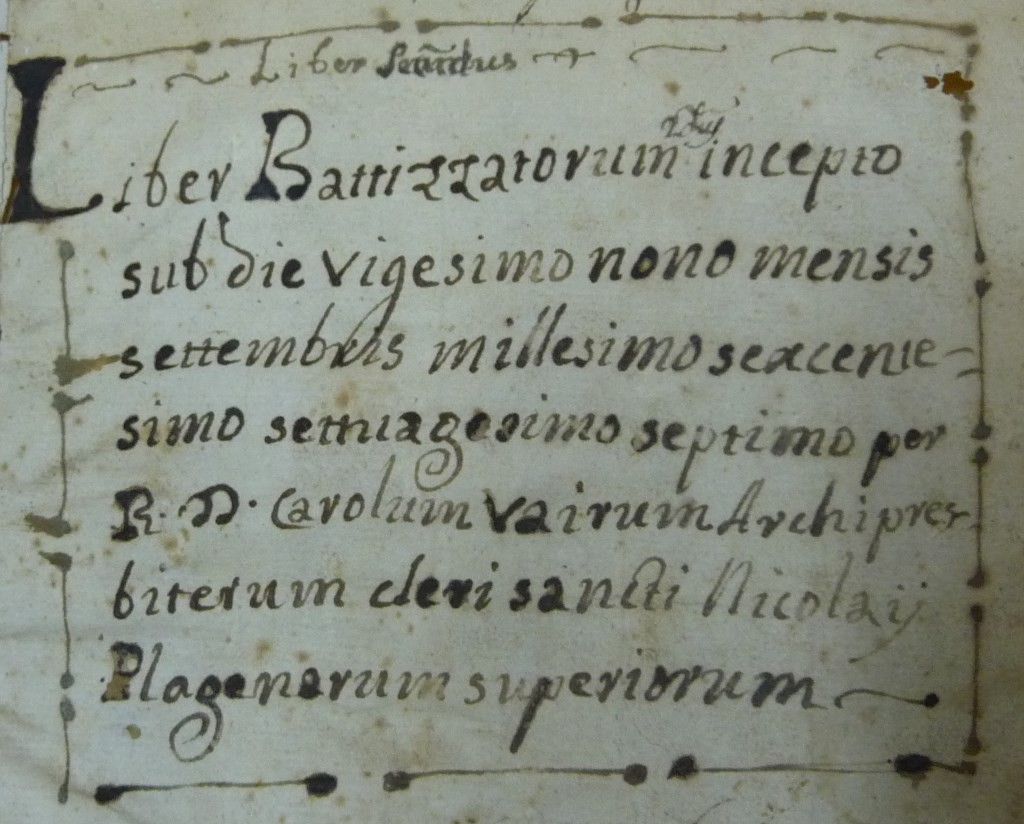 Liber Secundus
Liber Battizzatorum incepto
sub die vigesimo nono mensis
settembris millesimo sexcente-
simo settuagesimo septimo per
R. D. Carolum Vairum Archipres-
biterum cleri sancti Nicolaij
Plagenarum superiorum